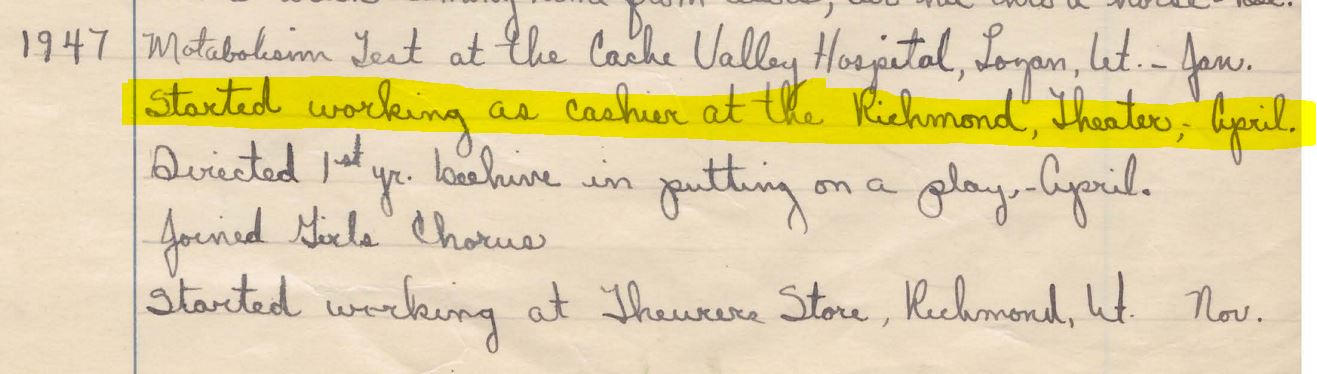 coming home from
1947 Motabolism Test at the Cache Valley Hospital, Logan, Ut. - Jan.
Started working as cashier at the Richmond, Theater, - April.
Directed 1st yr. beehive in putting on a play, - April.
Joined Girls Chorus
Started working at Theurers Store, Richmond, Ut. Nov.